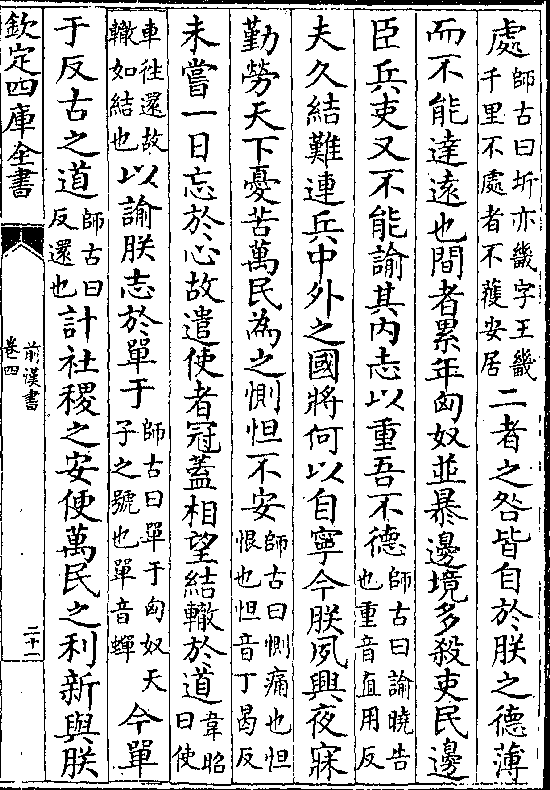 處師古曰圻亦畿字王畿千里不處者不獲安居二者之咎皆自於朕之德薄
而不能達遠也間者累年匈奴並暴邊境多殺吏民邊
臣兵吏又不能諭其内志以重吾不德師古曰諭曉告也重音直用反
夫久結難連兵中外之國將何以自寧今朕夙興夜寐
勤勞天下憂苦萬民為之惻怛不安師古曰惻痛也怛恨也怛音丁曷反
未嘗一日忘於心故遣使者冠蓋相望結轍於道韋昭曰使
車往還故轍如結也以諭朕志於單于師古曰單于匈奴天子之號也單音蟬今單
于反古之道師古曰反還也計社稷之安便萬民之利新與朕
欽定四庫全書
前漢書
卷四
二十一